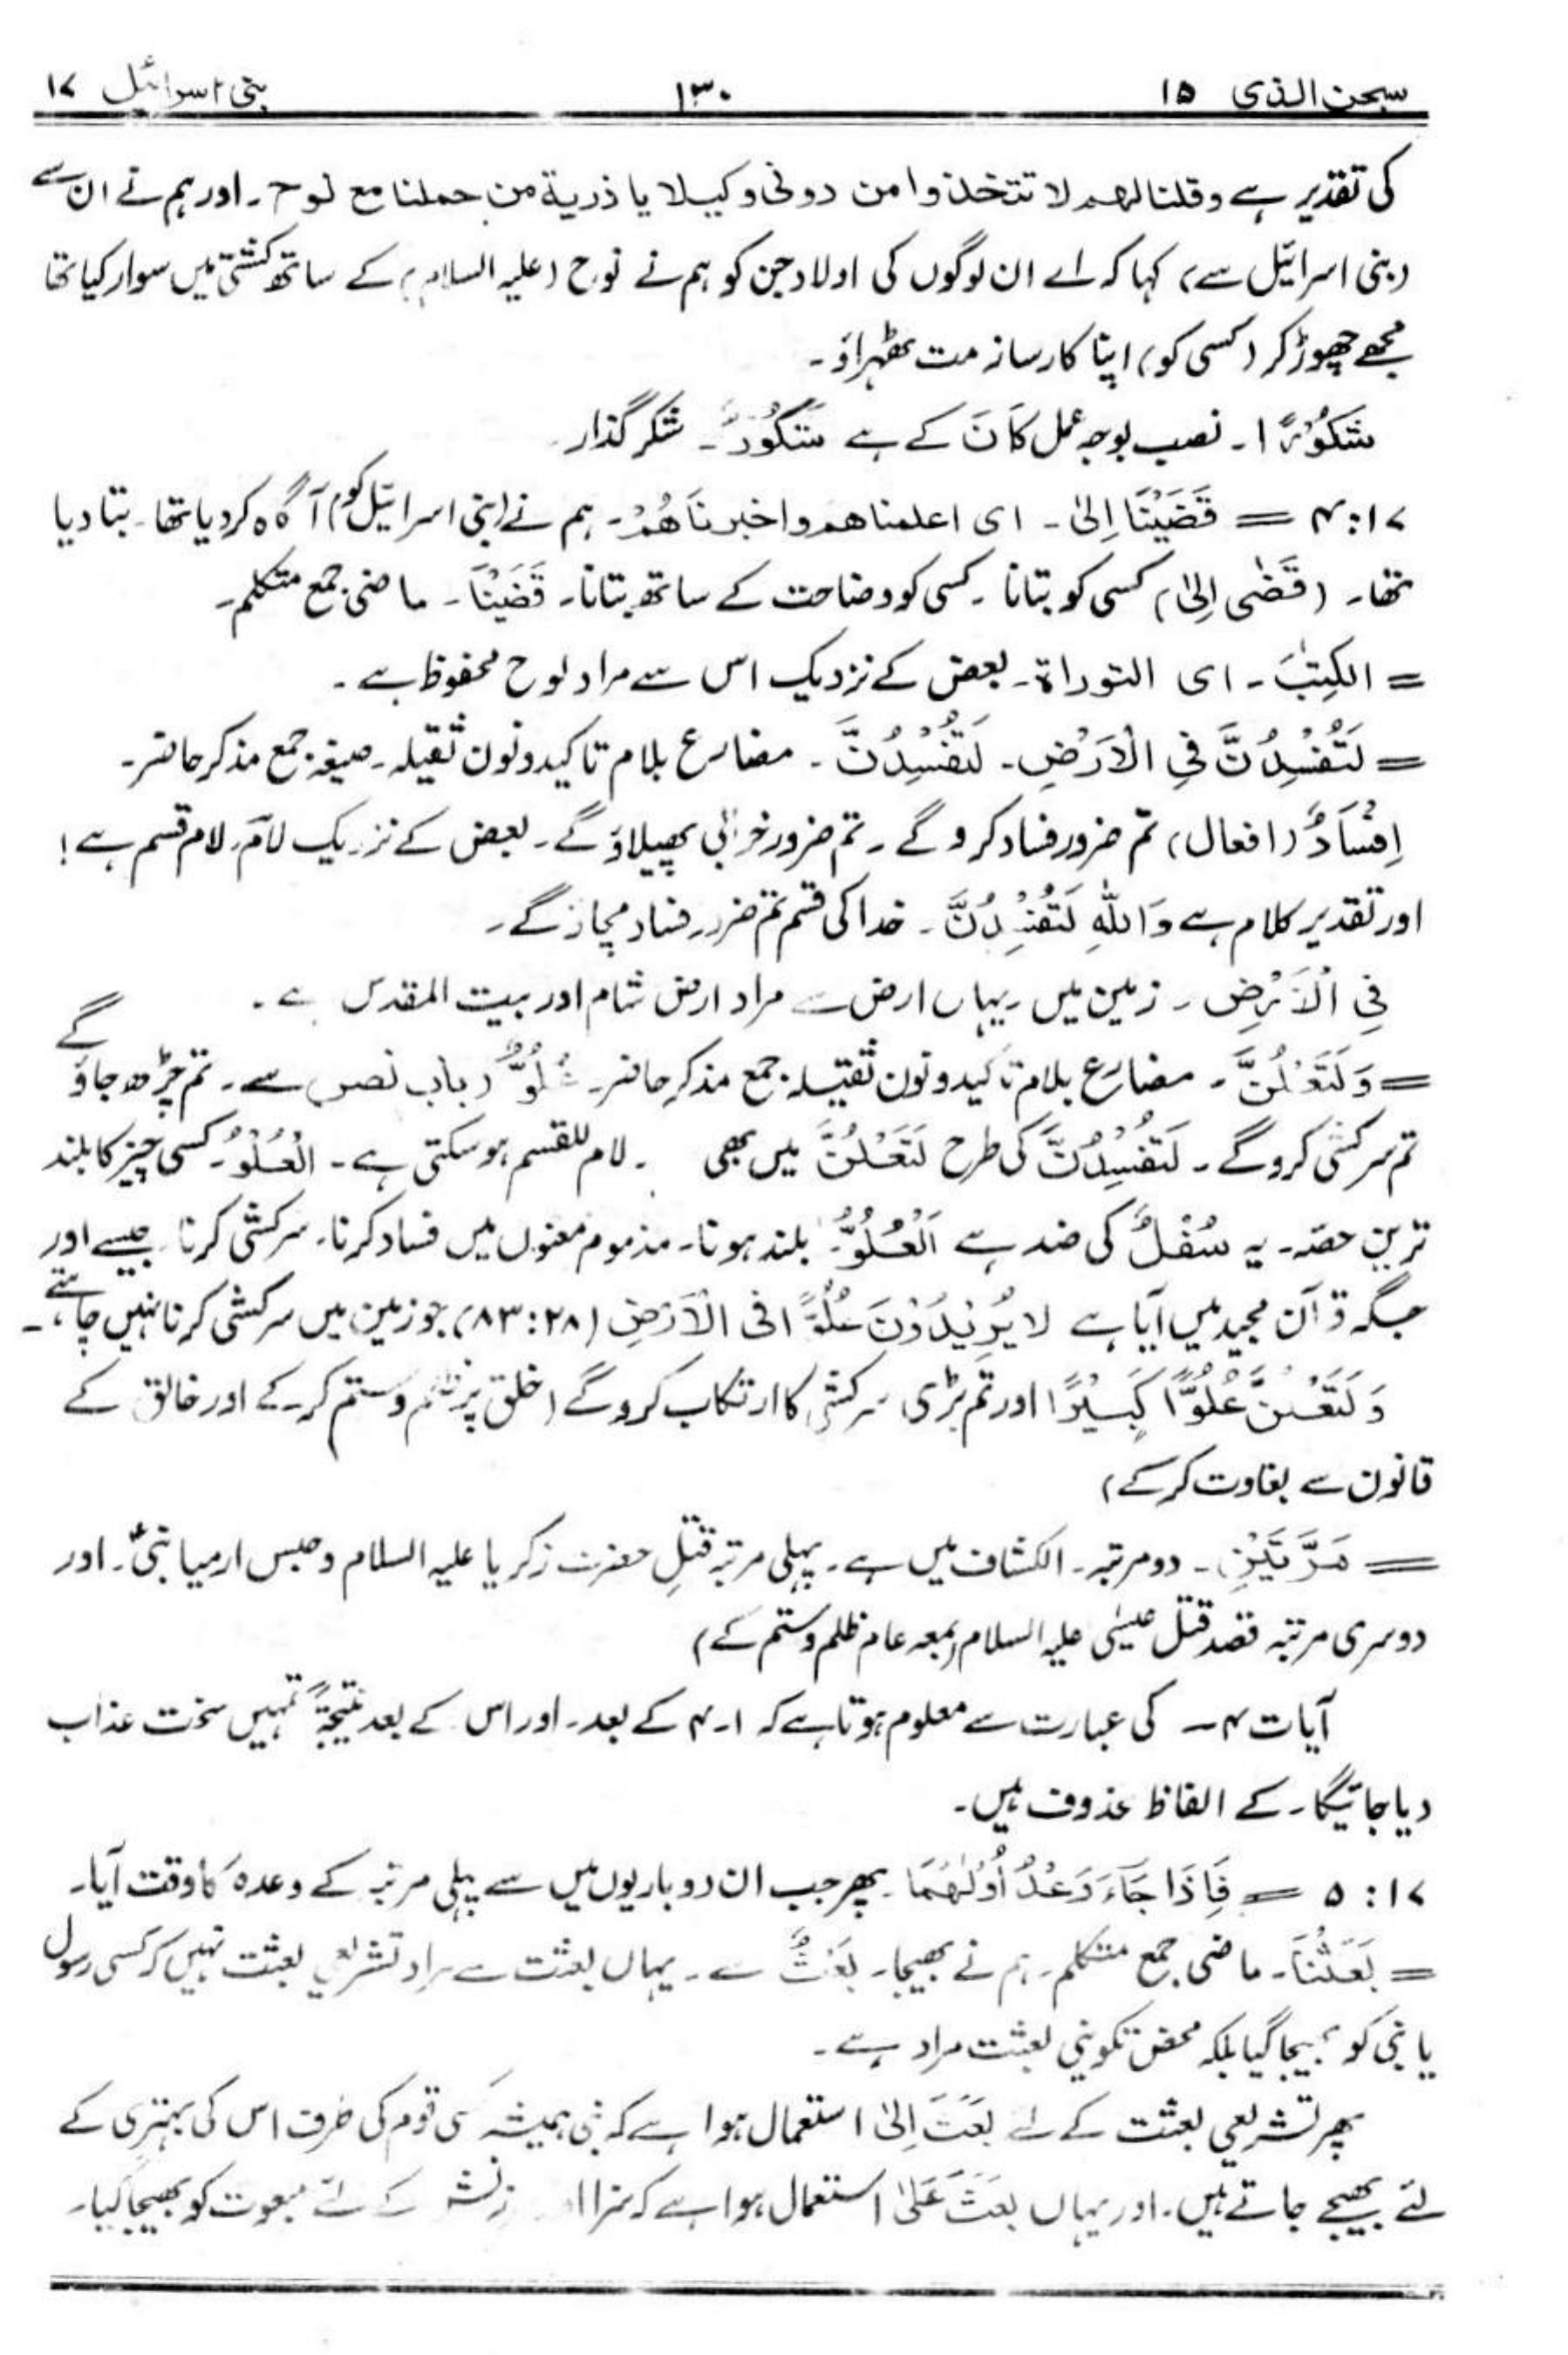 سبحن الذی ۱۵ ۱۳۰ بنی اسرائیل ۱۷
کی تقدیر ہے وقلنا لھم لا تتخذوا من دونی وکیلا یا ذریة من حملنا مع نوح۔ اور ہم نے ان سے
(بنی اسرائیل سے) کہا کہ اے ان لوگوں کی اولاد جن کو ہم نے نوح (علیہ السلام) کے ساتھ کشتی میں سوار کیا تھا
مجھے چھوڑ کر (کسی کو) اپنا کارساز مت ٹھہراؤ۔
شَکُوْرًا۔ نصب بوجہ عمل کَانَ کے ہے شَکُوْرٌ۔ شکر گذار
۱۷: ۴ = قَضَیْنَا اِلیٰ۔ ای اعلمناھم واخبرناھُمْ۔ ہم نے (بنی اسرائیل کو) آگاہ کر دیا تھا۔ بتا دیا
تھا۔ (قَضٰی اِلیٰ) کسی کو بتانا۔ کسی کو وضاحت کے ساتھ بتانا۔ قَضَیْنَا۔ ماضی جمع متکلم۔
= الکِتٰبَ۔ ای التوراة۔ بعض کے نزدیک اس سے مراد لوح محفوظ ہے۔
= لَتُفْسِدُنَّ فِی الْاَرْضِ۔ لَتُفْسِدُنَّ۔ مضارع بلام تاکید ونون ثقیلہ۔ صیغہ جمع مذکر حاضر۔
اِفْسَادٌ (افعال) تم ضرور فساد کرو گے۔ تم ضرور خرابی پھیلاؤ گے۔ بعض کے نزدیک لام، لام قسم ہے!
اور تقدیر کلام ہے وَاللّٰهِ لَتُفْسِدُنَّ۔ خدا کی قسم تم ضرور فساد مچاؤ گے۔
فِی الْاَرْضِ۔ زمین میں۔ یہاں ارض سے مراد ارض شام اور بیت المقدس ہے۔
= وَلَتَعْلُنَّ۔ مضارع بلام تاکید ونون ثقیلہ جمع مذکر حاضر۔ عُلُوٌّ (باب نصر) سے۔ تم چڑھ جاؤ گے
تم سرکشی کرو گے۔ لَتُفْسِدُنَّ کی طرح لَتَعْلُنَّ میں بھی ۔ لام للقسم ہو سکتی ہے۔ الْعُلْوُ۔ کسی چیز کا بلند
ترین حصہ۔ یہ سُفْلٌ کی ضد ہے اَلْعُلُوُّ۔ بلند ہونا۔ مذموم معنوں میں فساد کرنا۔ سرکشی کرنا۔ جیسے اور
جگہ قرآن مجید میں آیا ہے لا یُرِیْدُوْنَ عُلُوًّا فی الْاَرْضِ (۲۸: ۸۳) جو زمین میں سرکشی کرنا نہیں چاہتے۔
وَلَتَعْلُنَّ عُلُوًّا کَبِیْرًا اور تم بڑی سرکشی کا ارتکاب کرو گے (خلق پر ظلم وستم کر کے اور خالق کے
قانون سے بغاوت کر کے)
= مَرَّتَیْنِ۔ دو مرتبہ۔ الکشاف میں ہے۔ پہلی مرتبہ قتلِ حضرت زکریا علیہ السلام وحبس ارمیا نبیؑ۔ اور
دوسری مرتبہ قصد قتل عیسٰی علیہ السلام (بمعہ عام ظلم وستم کے)
آیات ۴۔ کی عبارت سے معلوم ہوتا ہے کہ ۱۔۴ کے بعد۔ اور اس کے بعد نتیجۃً تمہیں سخت عذاب
دیا جائیگا۔ کے الفاظ محذوف ہیں۔
۱۷: ۵ = فَاِذَا جَآءَ وَعْدُ اُوْلٰھُمَا۔ پھر جب ان دو باریوں میں سے پہلی مرتبہ کے وعدہ کا وقت آیا۔
= بَعَثْنَا۔ ماضی جمع متکلم۔ ہم نے بھیجا۔ بَعْثٌ سے۔ یہاں بعثت سے مراد تشریعی بعثت نہیں کہ کسی رسول
یا نبی کو بھیجا گیا بلکہ محض تکوینی بعثت مراد ہے۔
پھر تشریعی بعثت کے لئے بَعَثَ اِلیٰ استعمال ہوا ہے کہ نبی ہمیشہ کسی قوم کی طرف اس کی بہتری کے
لئے بھیجے جاتے ہیں۔ اور یہاں بَعَثَ عَلیٰ استعمال ہوا ہے کہ سزا کے لئے مبعوث کو بھیجا گیا۔